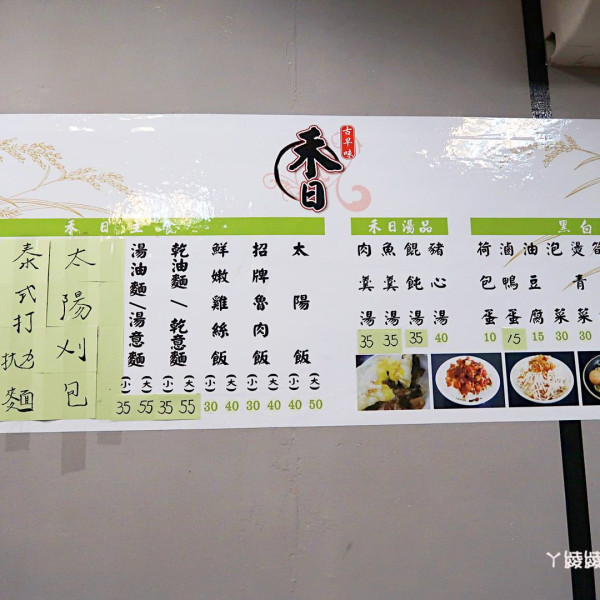 古早味
禾日
禾日主食
泰式打拋麵
太陽刈包
湯油麵/湯意麵
(小) (大)
35 55
乾油麵/乾意麵
(小) (大)
35 55
鮮嫩雞絲飯
(小) (大)
30 40
招牌魯肉飯
(小) (大)
30 40
太陽飯
(小) (大)
40 50
禾日湯品
肉羹湯
35
魚羹湯
35
餛飩湯
35
豬心湯
40
黑白
荷包蛋
10
滷鴨蛋
15
油豆腐
15
泡菜
30
燙青菜
30
ㄚ陵陵